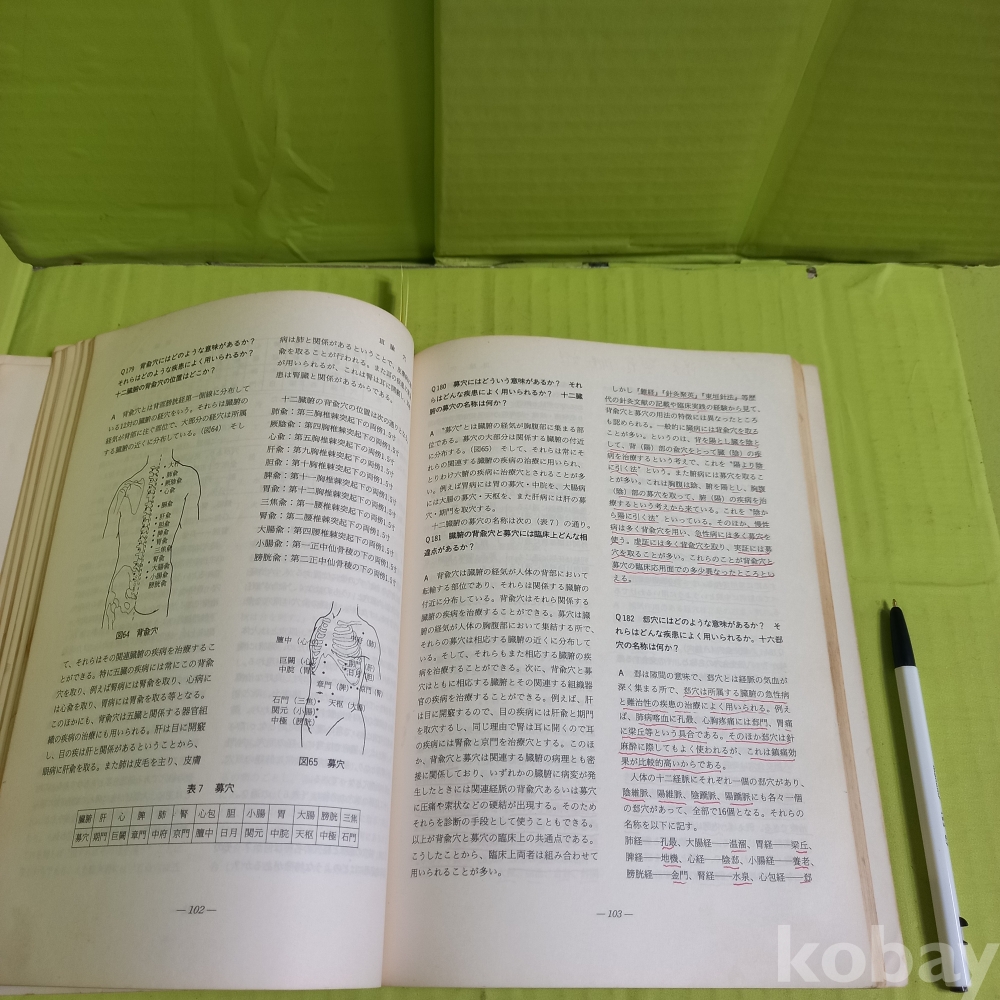 Q179 背兪穴にはどのような意味があるか？
それらはどのような疾患によく用いられるか？
十二臓腑の背兪穴の位置はどこか？
A 背兪穴とは背部膀胱経第一側線に分布して
いる臓腑の経穴をいう。それらは臓腑の
経気が背部に注ぐ部位で、大部分の経穴は所属
する臓腑の近くに分布している。（図64） そし
大杼
肺兪
厥陰兪
心兪
膈兪
肝兪
胆兪
脾兪
胃兪
三焦兪
腎兪
大腸兪
小腸兪
膀胱兪
図64 背兪穴
て、それらはその関連臓腑の疾病を治療するこ
とができる。特に五臓の疾病には常にこの背兪
穴を取り、例えば腎病には腎兪を取り、心病に
は心兪を取り、胃病には胃兪を取る等となる。
このほかにも、背兪穴は五臓と関係する器官組
織の疾病の治療にも用いられる。肝は目に開竅
し、目の疾は肝と関係があるということから、
眼病に肝兪を取る。また肺は皮毛を主り、皮膚
病は肺と関係があるということで、
兪を取ることが行われる。また耳の
が用いられるが、これは腎は耳に開竅し
患は腎臓と関係があるからである。
十二臓腑の背兪穴の位置は次の通り
肺兪：第三胸椎棘突起下の両傍1.5寸
厥陰兪：第四胸椎棘突起下の両傍1.5寸
心兪：第五胸椎棘突起下の両傍1.5寸
肝兪：第九胸椎棘突起下の両傍1.5寸
胆兪：第十胸椎棘突起下の両傍1.5寸
脾兪：第十一胸椎棘突起下の両傍1.5寸
胃兪：第十二胸椎棘突起下の両傍1.5寸
三焦兪：第一腰椎棘突起下の両傍1.5寸
腎兪：第二腰椎棘突起下の両傍1.5寸
大腸兪：第四腰椎棘突起下の両傍1.5寸
小腸兪：第一正中仙骨稜の下の両傍1.5寸
膀胱兪：第二正中仙骨稜の下の両傍1.5寸
膻中（心包）
中府（肺）
巨闕（心）
期門（肝）
日月（胆）
中脘（胃）
章門（脾）
京門（腎）
石門（三焦）
天枢（大腸）
関元（小腸）
中極（膀胱）
図65 募穴
表7 募穴
臓腑 肝 心 脾 肺 腎 心包 胆 小腸 胃 大腸 膀胱 三焦
募穴 期門 巨闕 章門 中府 京門 膻中 日月 関元 中脘 天枢 中極 石門
—102—
Q180 募穴にはどういう意味があるか？ それ
らはどんな疾患によく用いられるか？ 十二臓
腑の募穴の名称は何か？
A “募穴”とは臓腑の経気が胸腹部に集まる部
位である。募穴の大部分は関係する臓腑の付近
に分布する。（図65） そして、それらは常にそ
れらの関連する臓腑の疾病の治療に用いられ、
とりわけ六腑の疾病に治療穴とされることが多
い。例えば胃病には胃の募穴・中脘を、大腸病
には大腸の募穴・天枢を、また肝病には肝の募
穴・期門を取穴する。
十二臓腑の募穴の名称は次の（表7）の通り。
Q181 臓腑の背兪穴と募穴には臨床上どんな相
違点があるか？
A 背兪穴は臓腑の経気が人体の背部において
転輸する部位であり、それらは関係する臓腑の
付近に分布している。背兪穴はそれら関係する
臓腑の疾病を治療することができる。募穴は臓
腑の経気が人体の胸腹部において集結する所で、
それらの募穴は相応する臓腑の近くに分布して
いる。そして、それらもまた相応する臓腑の疾
病を治療することができる。次に、背兪穴と募
穴はともに相応する臓腑とその関連する組織器
官の疾病を治療することができる。例えば、肝
は目に開竅するので、目の疾病には肝兪と期門
を取穴するし、同じ理由で腎は耳に開くので耳
の疾病には腎兪と京門を治療穴とする。このほ
か、背兪穴と募穴は関連する臓腑の病理とも密
接に関係しており、いずれかの臓腑に病変が発
生したときには関連経脈の背兪穴あるいは募穴
に圧痛や索状などの硬結が出現する。そのため
それらを診断の手段として使うこともできる。
以上が背兪穴と募穴の臨床上の共通点である。
こうしたことから、臨床上両者は組み合わせて
用いられることが多い。
しかし『難経』『針灸聚英』『東垣針法』等歴
代の針灸文献の記載や臨床実践の経験から見て、
背兪穴と募穴の用法の特徴には異なったところ
も認められる。一般的に臓病には背兪穴を取る
ことが多い。というのは、背を陽とし臓を陰と
して、背（陽）部の兪穴をとって臓（陰）の疾
病を治療するという考えで、これを“陽より陰
に引く法”という。また腑病には募穴を取るこ
とが多い。これは胸腹は陰、腑を陽とし、胸腹
（陰）部の募穴を取って、腑（陽）の疾病を治
療するという考えから来ている。これを“陰か
ら陽に引く法”といっている。そのほか、慢性
病は多く背兪穴を用い、急性病には多く募穴を
使う。虚証には多く背兪穴を取り、実証には募
穴を取ることが多い。これらのことが背兪穴と
募穴の臨床応用面での多少異なったところとい
える。
Q182 郄穴にはどのような意味があるか？ そ
れらはどんな疾患によく用いられるか。十六郄
穴の名称は何か？
A 郄は隙間の意味で、郄穴とは経脈の気血が
深く集まる所で、郄穴は所属する臓腑の急性病
と難治性の疾患の治療によく用いられる。例え
ば、肺病喀血に孔最、心胸疼痛は郄門、胃痛
に梁丘等という具合である。そのほか郄穴は針
麻酔に際してもよく使われるが、これは鎮痛効
果が比較的高いからである。
人体の十二経脈にそれぞれ一個の郄穴があり、
陰維脈、陽維脈、陰蹻脈、陽蹻脈にも各々一個
の郄穴があって、全部で16個となる。それらの
名称を以下に記す。
肺経——孔最、大腸経——温溜、胃経——梁丘、
脾経——地機、心経——陰郄、小腸経——養老、
膀胱経——金門、腎経——水泉、心包経——郄
—103—
kobay